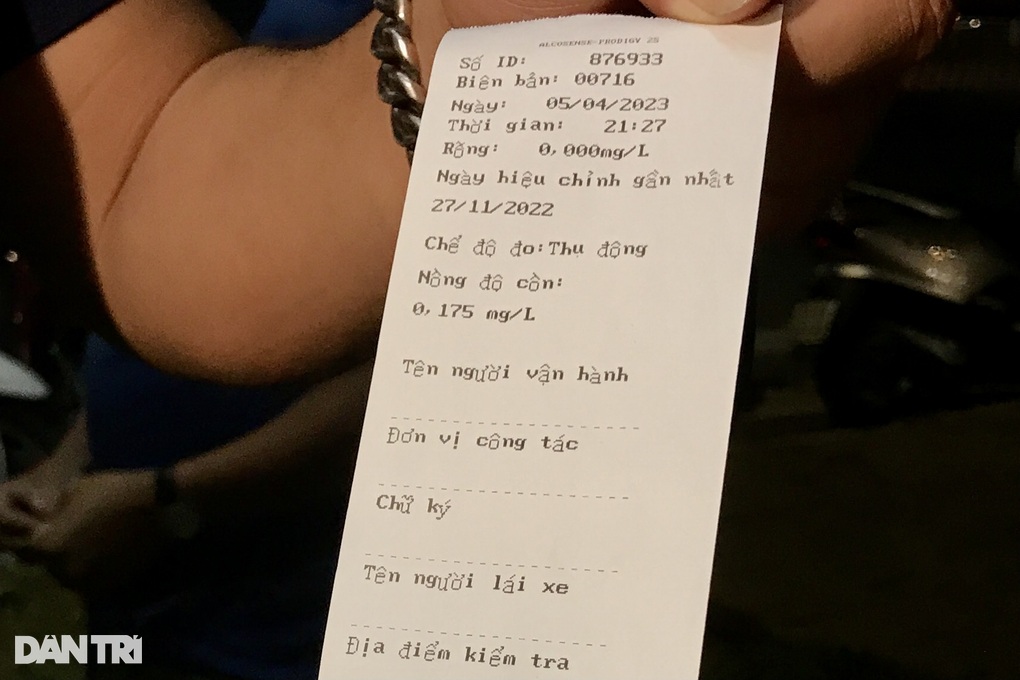 ALCOSENSE-PRODIGY 2S
Số ID: 876933
Biên bản: 00716
Ngày: 05/04/2023
Thời gian: 21:27
Rỗng: 0,000mg/L
Ngày hiệu chỉnh gần nhất
27/11/2022
Chế độ đo:Thụ động
Nồng độ cồn:
0,175 mg/L
Tên người vận hành
Đơn vị công tác
Chữ ký
Tên người lái xe
Địa điểm kiểm tra
DÂN TRÍ